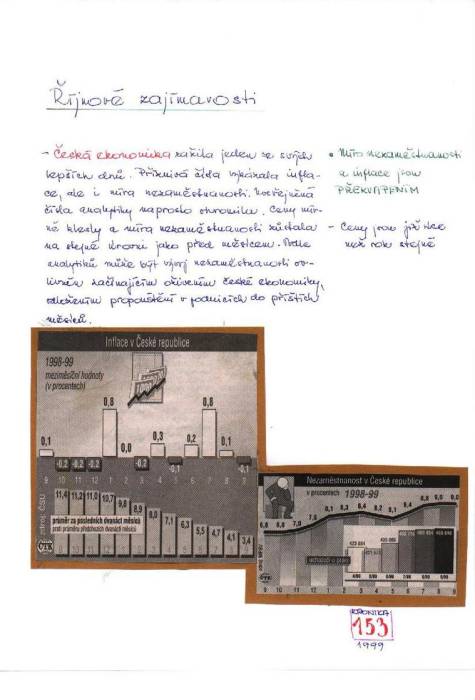 Říjnové zajímavosti
- Česká ekonomika zažila jeden ze svých
lepších dnů. Příznivá čísla vykázala infla-
ce, ale i míra nezaměstnanosti. Zveřejněná
čísla analytiky naprosto ohromila. Ceny mír-
ně klesly a míra nezaměstnanosti zůstala
na stejné úrovni jako před měsícem. Podle
analytiků může být vývoj nezaměstnanosti ov-
livněn začínajícím oživením české ekonomiky,
odložením propouštění v podnicích do příštích
měsíců.
• Míra nezaměstnanosti
a inflace jsou
PŘEKVAPENÍM
- Ceny jsou již více
než rok stejné
Inflace v České republice
1998-99
meziměsíční hodnoty
(v procentech)
0,1 -0,2 -0,2 -0,2 0,8 0,0 -0,2 0,3 0,2 -0,1 0,8 0,1 -0,1
9 10 11 12 1 2 3 4 5 6 7 8 9
11,4 11,2 11,0 10,7 9,8 8,9 8,0 7,1 6,3 5,5 4,7 4,1 3,4
průměr za posledních dvanáct měsíců
proti průměru předchozích dvanácti měsíců
zdroj: ČSÚ
ČTK
Nezaměstnanost v České republice
v procentech 1998-99
6,8 6,8 7,0 7,5 8,1 8,3 8,4 8,2 8,1 8,4 8,8 9,0 9,0
uchazeči o práci
4/99 5/99 6/99 7/99 8/99 9/99
ČTK
9 10 11 12 1 2 3 4 5 6 7 8 9
KRONIKA
153
1999